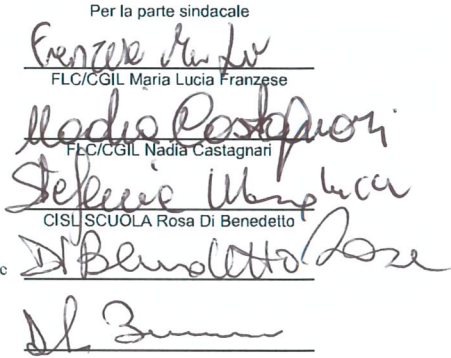 Per la parte sindacale
Franzese
FLC/CGIL Maria Lucia Franzese
Nadia Castagnari
FLC/CGIL Nadia Castagnari
Stefania
CISL SCUOLA Rosa Di Benedetto
c Di Benedetto Rosa